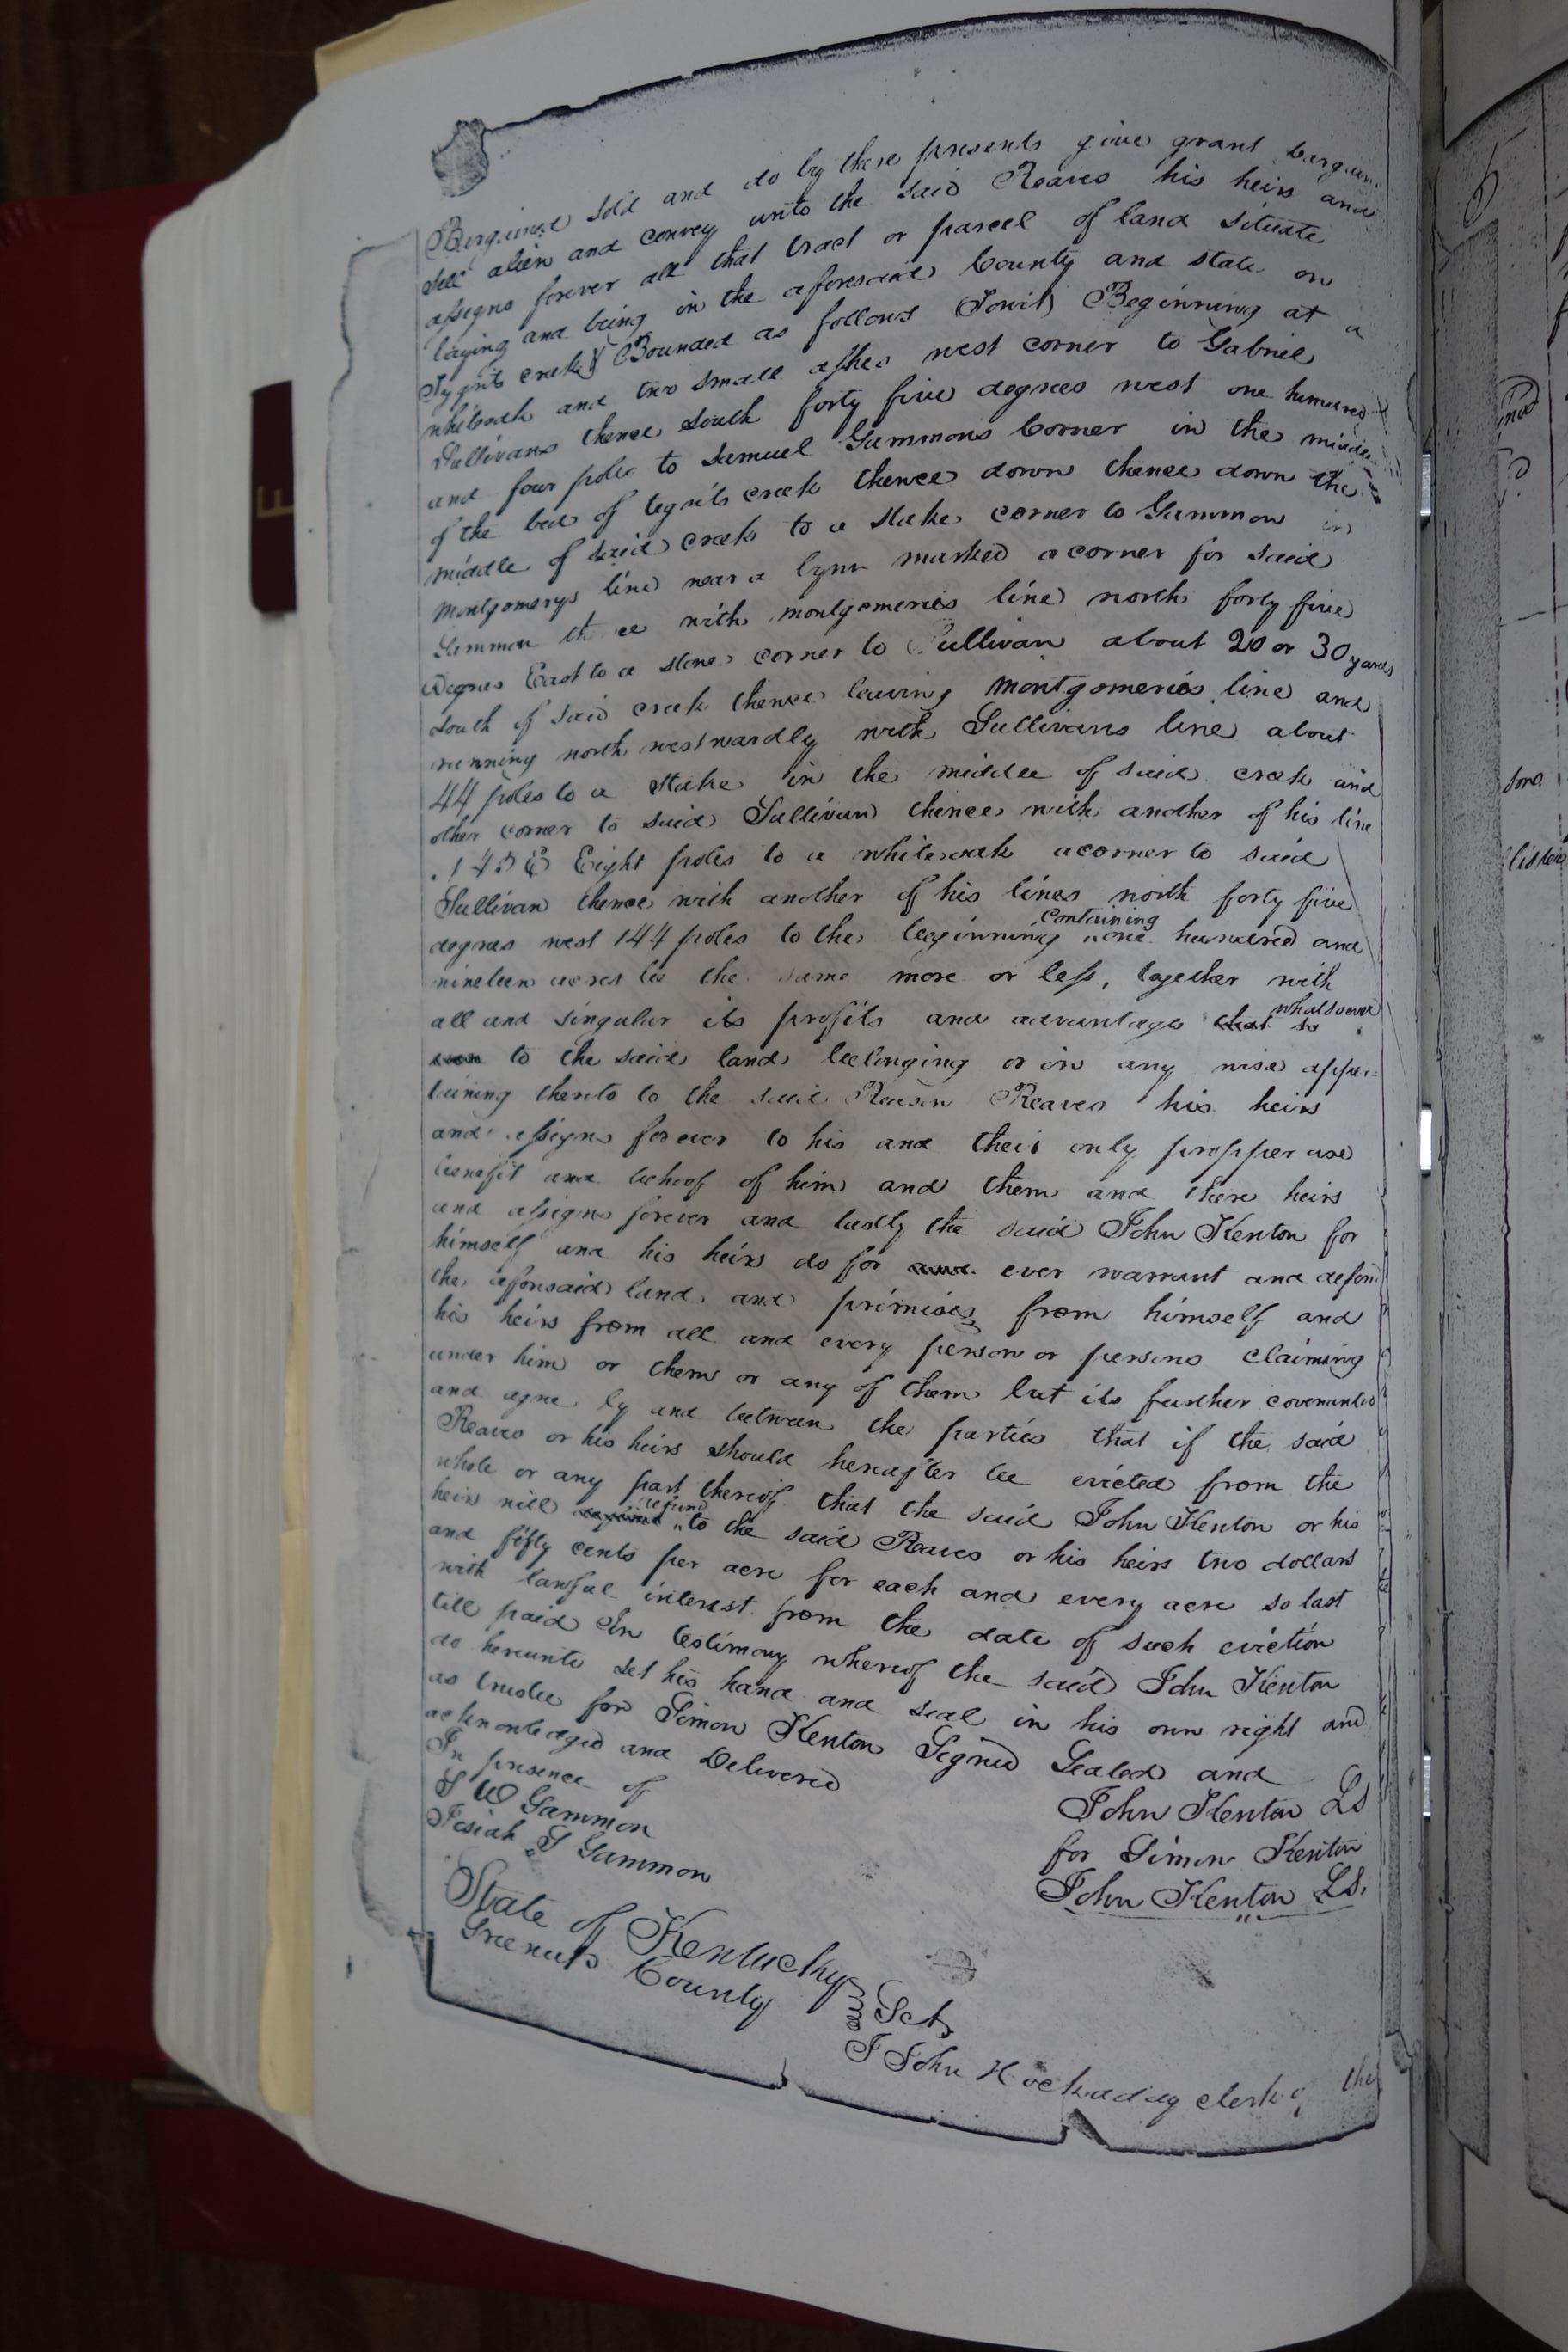 Bargained sold and do by these presents give grant bargain
sell alien and convey unto the said Reaves his heirs and
assigns forever all that tract or parcel of land situate
laying and being in the aforesaid County and state on
Tygrts creek Bounded as follows (Towit) Beginning at a
whiteoak and two small ashes west corner to Gabriel
Sullivans thence south forty five degrees west one hundred
and four poles to Samuel Gammons Corner in the middle
of the bed of tygrts creek thence down thence down the
middle of said creek to a stake corner to Gammon in
Montgomerys line near a lynn marked a corner for said
Gammon thence with montgomeries line north forty five
Degrees East to a stone corner to Sullivan about 20 or 30 yards
south of said creek thence leaving Montgomeries line and
running north westwardly with Sullivans line about
44 poles to a stake in the middle of said creek and
other corner to said Sullivan thence with another of his line
45 E Eight poles to a whiteoak a corner to said
Sullivan thence with another of his lines north forty five
degrees west 144 poles to the beginning containing one hundred and
nineteen acres be the same more or less, together with
all and singular its profits and advantages that so whatsoever
to the said land belonging or in any wise apper=
taining thereto to the said Reason Reaves his heirs
and assigns forever to his and their only propper use
benefit and behoof of him and them and there heirs
and assigns forever and lastly the said John Kenton for
himself and his heirs do for ever warrant and defend
the aforesaid land and primises from himself and
his heirs from all and every person or persons claiming
under him or them or any of them but its further covenanted
and agree by and between the parties that if the said
Reaves or his heirs should hereafter be evicted from the
whole or any part thereof that the said John Kenton or his
heirs will refund to the said Reaves or his heirs two dollars
and fifty cents per acre for each and every acre so last
with lawful interest from the date of such eviction
till paid In testimony whereof the said John Kenton
do hereunto set his hand and seal in his own right and
as trustee for Simon Kenton Signed Sealed and
acknowledged and Delivered
In presence of
S W Gammon
Josiah S Gammon
John Kenton LS
for Simon Kenton
John Kenton LS.
State of Kentucky
Greenup County Sct
I John Hockaday clerk of the